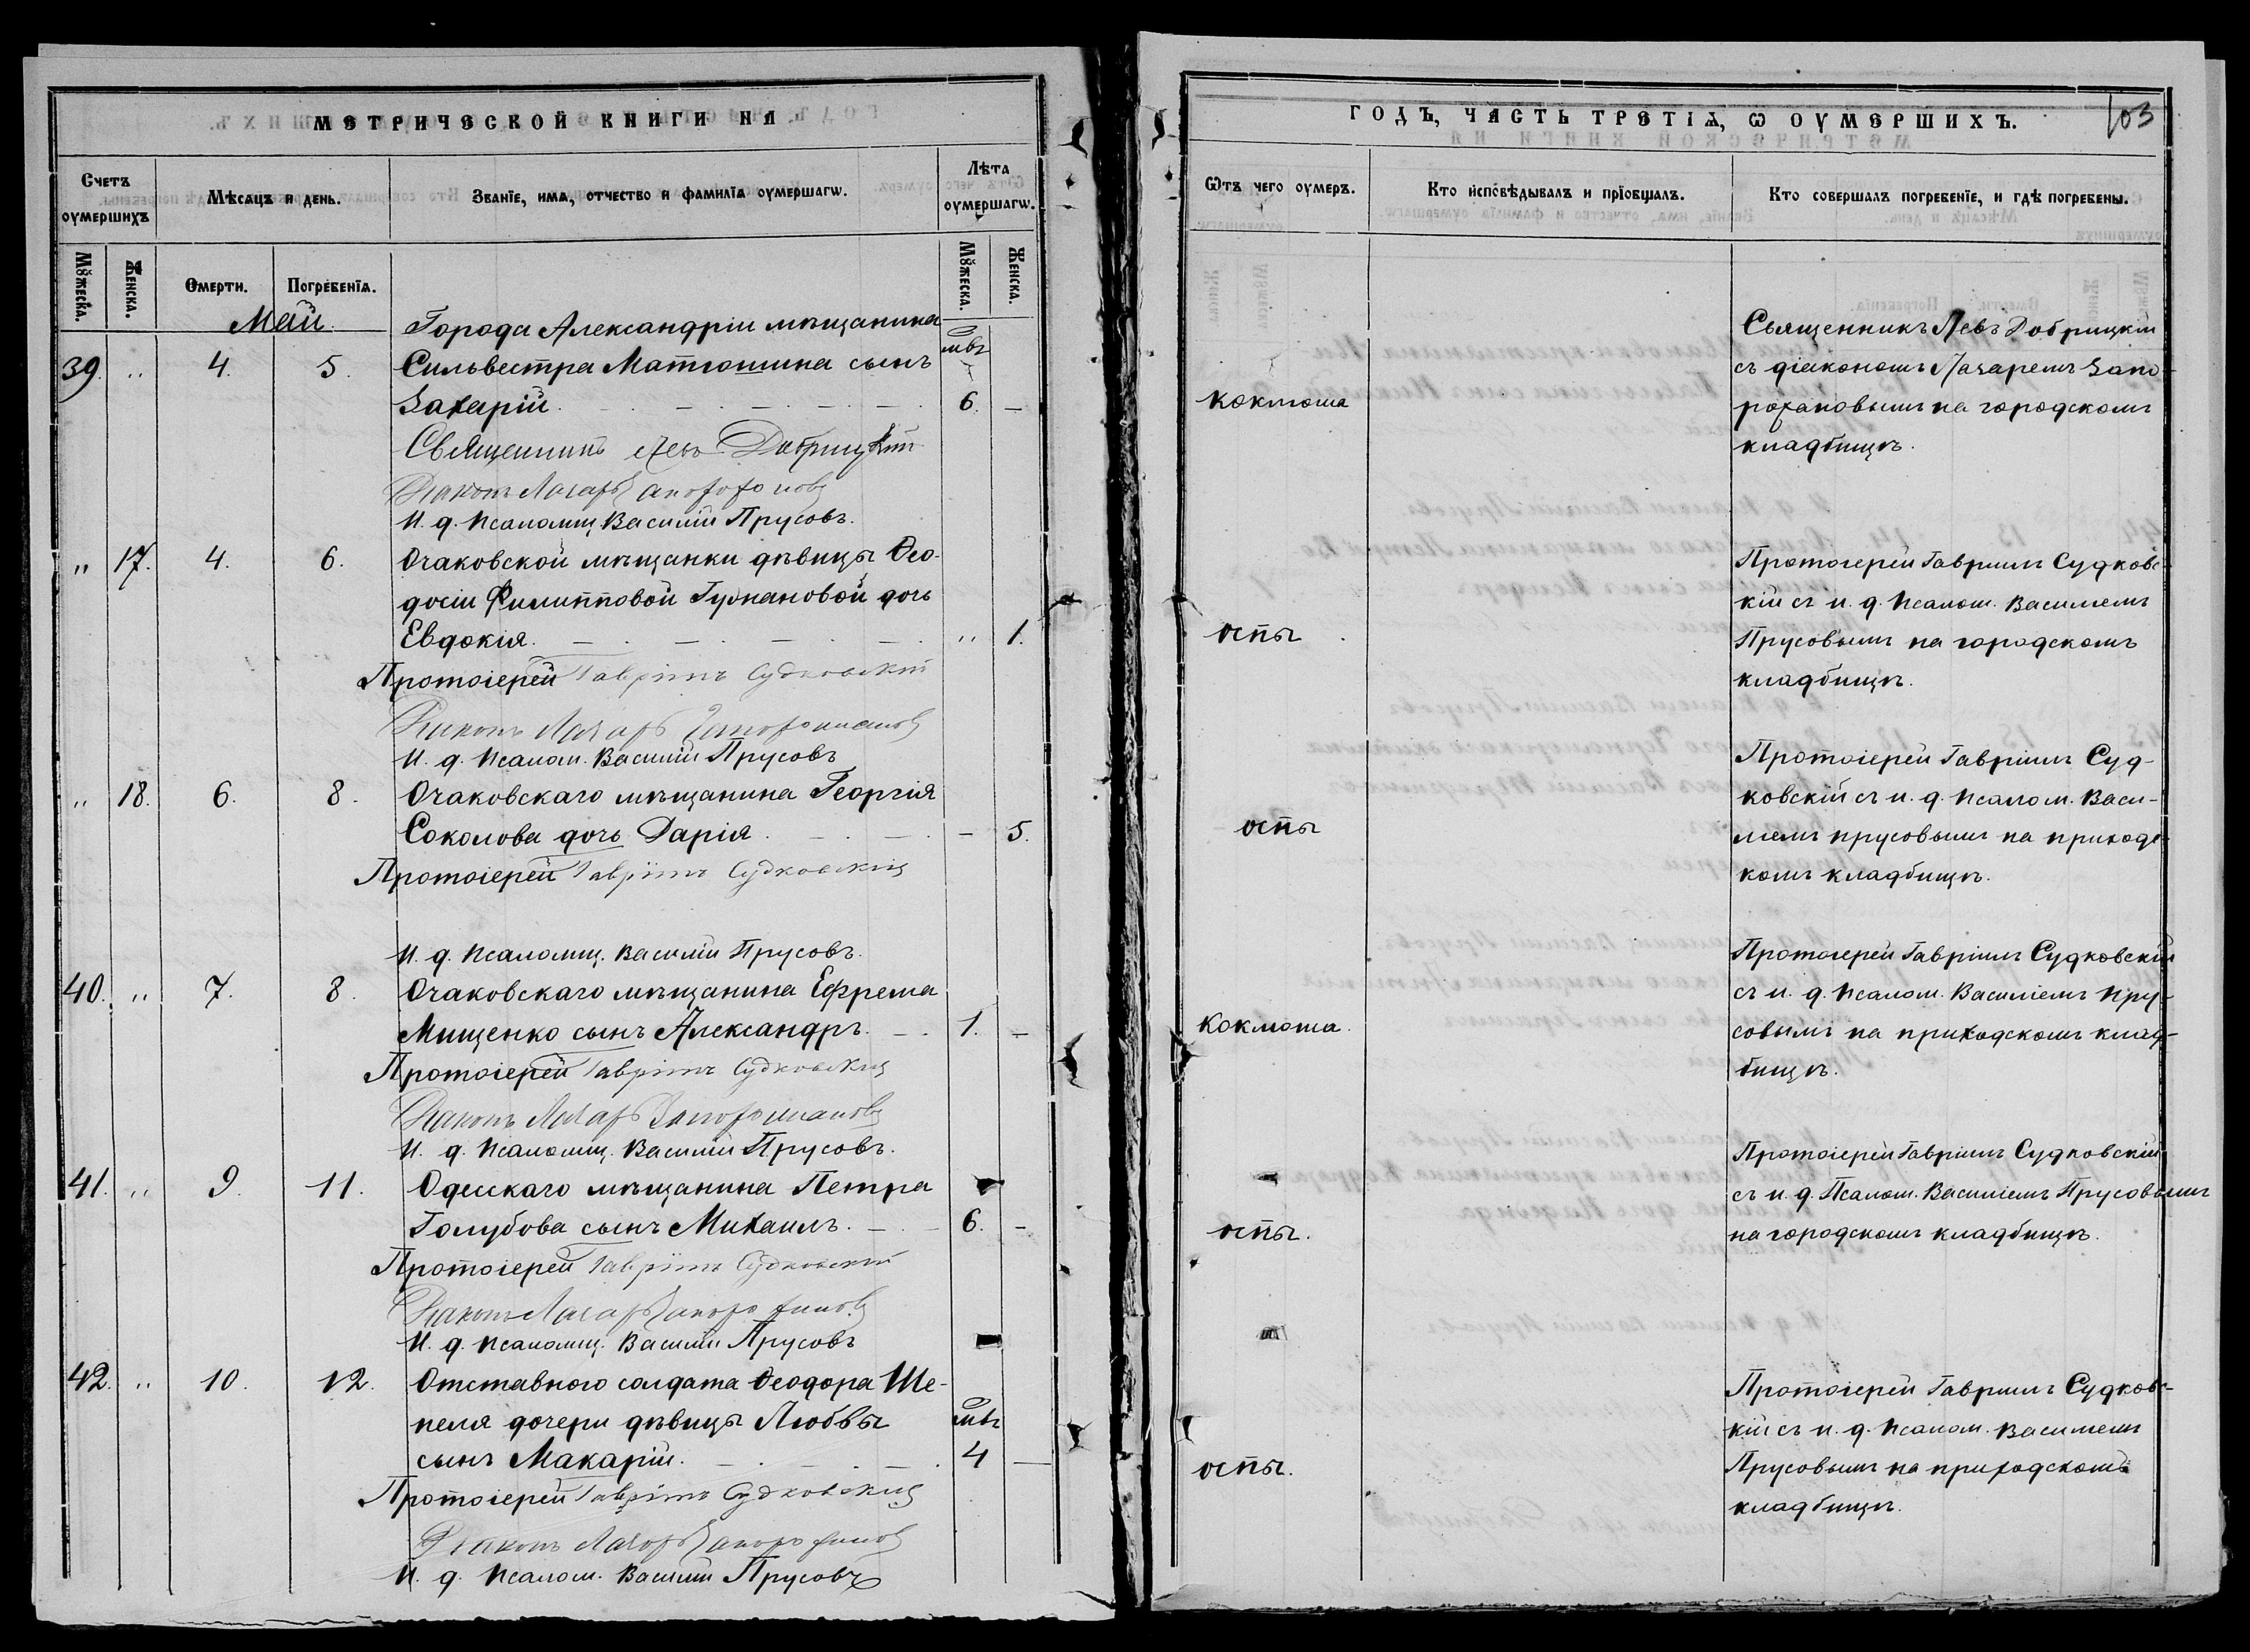 МЕТРИЧЕСКОЙ КНИГИ НА
Счетъ оумершихъ
Мѣсяцъ и день.
Званїе, имѧ, отчество и фамилїѧ оумершагѡ.
Лѣта оумершагѡ.
Мꙋжеска. Женска. Смерти. Погребенїѧ. Мꙋжеска. Женска.
Май.
Города Александріи мѣщанина
39. " 4. 5. Сильвестра Матюшина сынъ мѣс
Захарій. 6. —
Священникъ Левъ Добрицкій
Діаконъ Лазарь Запорожановъ
И. д. Псаломщ. Василій Прусовъ.
" 17. 4. 6. Очаковской мѣщанки дѣвицы Ѳео-
досіи Филипповой дочь
Евдокія. " 1.
Протоіерей Гавріилъ Судковскій
Діаконъ Лазарь Запорожановъ
И. д. Псалом. Василій Прусовъ
" 18. 6. 8. Очаковскаго мѣщанина Георгія
Соколова дочь Дарія. — 5.
Протоіерей Гавріилъ Судковскій
И. д. Псаломщ. Василій Прусовъ.
40. " 7. 8. Очаковскаго мѣщанина Ефрема
Мищенко сынъ Александръ. 1. —
Протоіерей Гавріилъ Судковскій
Діаконъ Лазарь Запорожановъ
И. д. Псаломщ. Василій Прусовъ.
41. " 9. 11. Одесскаго мѣщанина Петра
Голубова сынъ Михаилъ. 6. —
Протоіерей Гавріилъ Судковскій
Діаконъ Лазарь Запорожановъ
И. д. Псаломщ. Василій Прусовъ
42. " 10. 12. Отставного солдата Ѳеодора Ше-
пеля дочери дѣвицы Любвы мѣс
сынъ Макарій. 4 —
Протоіерей Гавріилъ Судковскій
Діаконъ Лазарь Запорожановъ
И. д. Псалом. Василій Прусовъ
ГОДЪ, ЧАСТЬ ТРЕТІѦ, Ѡ ОУМЕРШИХЪ. 103
Ѿтъ чего оумеръ.
Кто исповѣдывалъ и прїобщалъ.
Кто совершалъ погребенїе, и гдѣ погребены.
Священникъ Левъ Добрицкій
съ діакономъ Лазаремъ Запо-
коклюша рожановымъ на городскомъ
кладбищѣ.
Протоіерей Гавріилъ Судковс-
кій съ и. д. Псалом. Василіемъ
оспы Прусовымъ на городскомъ
кладбищѣ.
Протоіерей Гавріилъ Суд-
ковскій съ и. д. Псалом. Васи-
оспы ліемъ Прусовымъ на приходс-
комъ кладбищѣ.
Протоіерей Гавріилъ Судковскій
съ и. д. Псалом. Василіемъ Пру-
коклюша. совымъ на приходскомъ клад-
бищѣ.
Протоіерей Гавріилъ Судковскій
съ и. д. Псалом. Василіемъ Прусовымъ
оспы. на городскомъ кладбищѣ.
Протоіерей Гавріилъ Судковс-
кій съ и. д. Псалом. Василіемъ
оспы. Прусовымъ на приходскомъ
кладбищѣ.